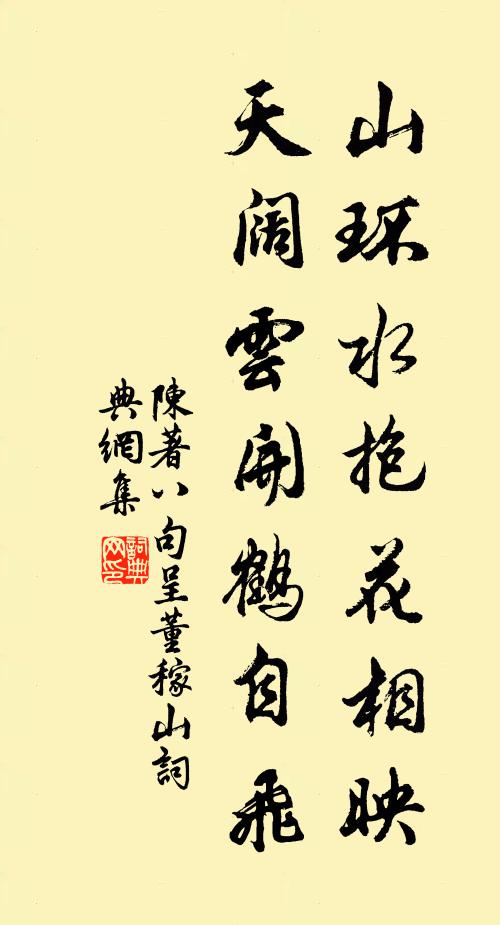 山环水抱花相映
天阔雲開鶴自飛
陳著八句呈董稼山詞
典網集
詞典网印